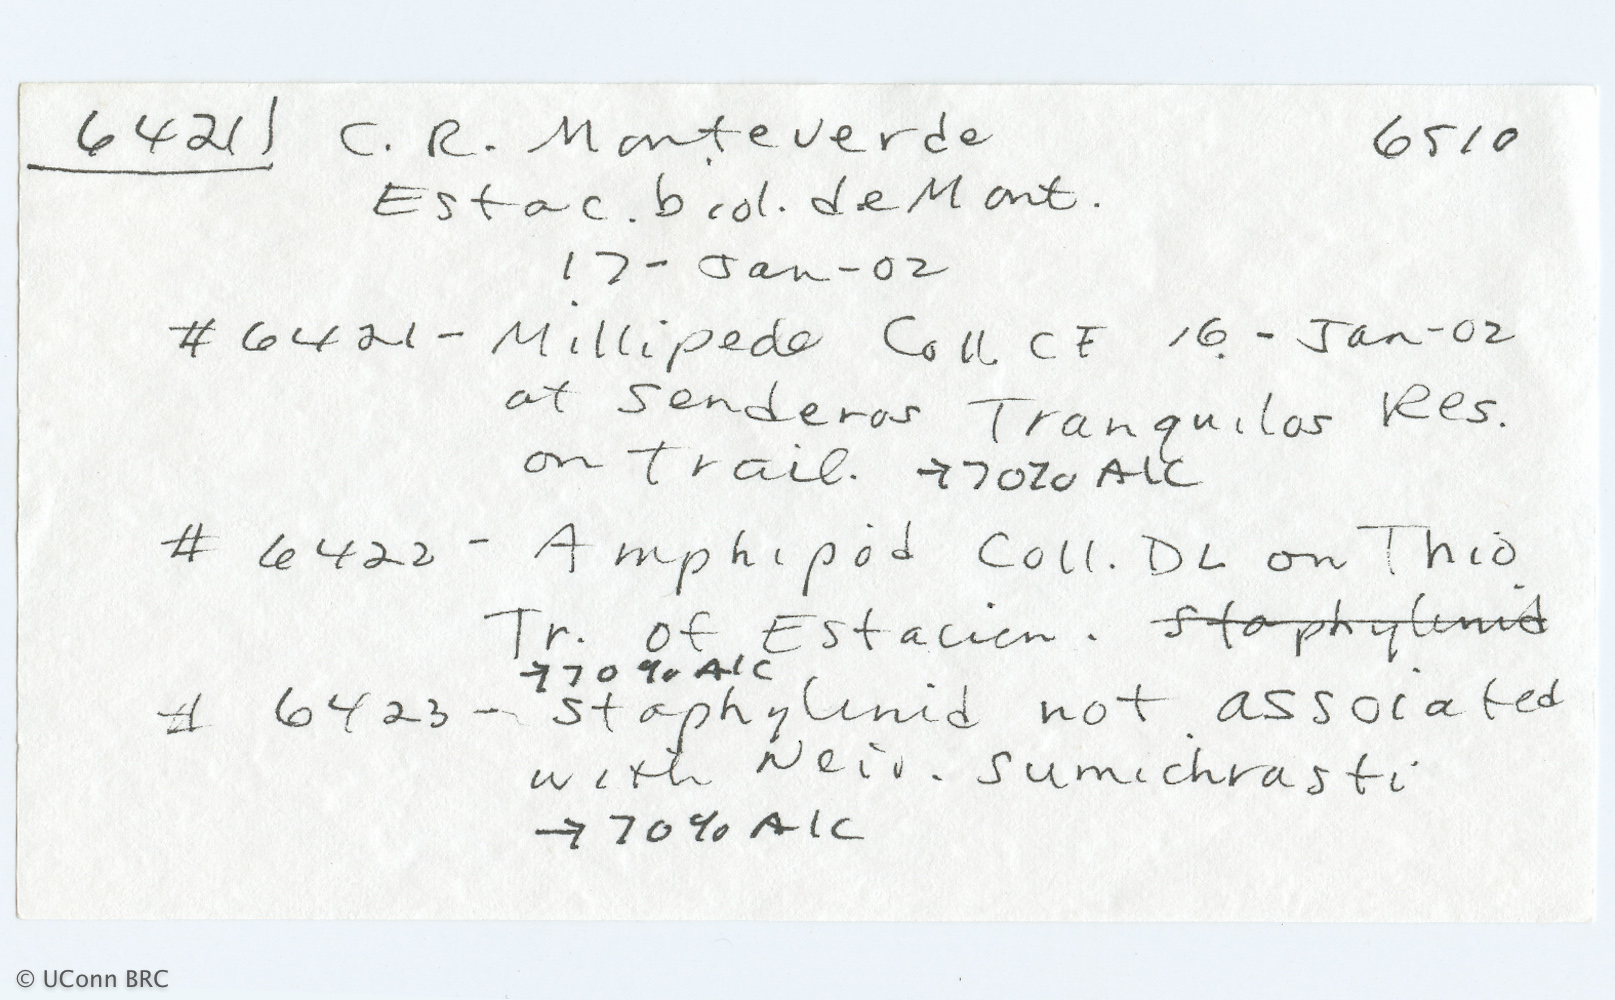 6421 C. R. Monteverde 6510
Estac. biol. de Mont.
17-Jan-02
# 6421 - Millipede Coll. CE 16-Jan-02
at Senderos Tranquilos Res.
on trail. → 70% Alc
# 6422 - Amphipod Coll. DL on
Tr. of Estacion. Staphylinid
→ 70% Alc
# 6423 - Staphylinid not associated
with Neiv. sumichrasti
→ 70% Alc
© UConn BRC